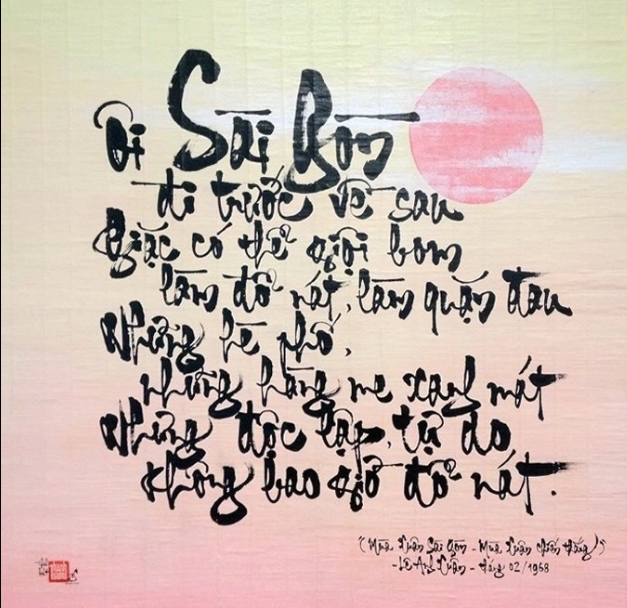 Ôi Sài Gòn
đi trước về sau
Giặc có thể giội bom
làm đổ nát, làm quặn đau
Những hè phố,
những hàng me xanh mát
Nhưng độc lập, tự do
không bao giờ đổ nát.
(Mùa Xuân Sài Gòn - Mùa Xuân chiến thắng)
- Lê Anh Xuân - tháng 02/1968